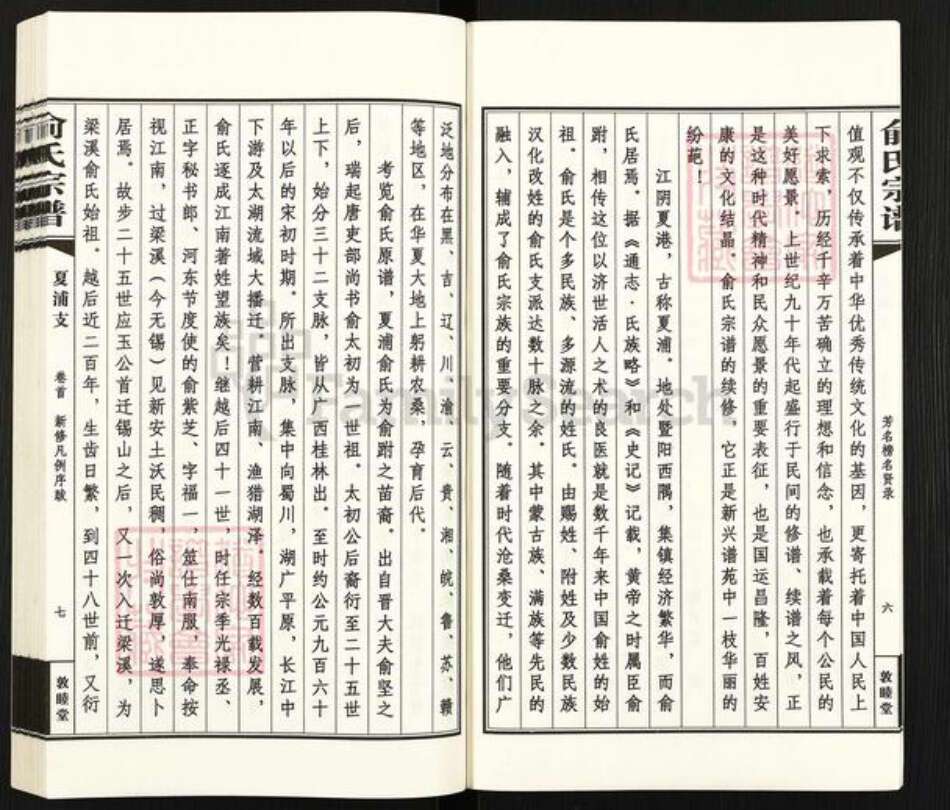 俞氏宗谱
芳名榜名贤录
六
敦睦堂
值观不仅传承着中华优秀传统文化的基因，更寄托着中国人民上
下求索，历经千辛万苦确立的理想和信念，也承载着每个公民的
美好愿景。上世纪九十年代起盛行于民间的修谱、续谱之风，正
是这种时代精神和民众愿景的重要表征，也是国运昌隆，百姓安
康的文化结晶。俞氏宗谱的续修，它正是新兴谱苑中一枝华丽的
纷葩！
江阴夏港，古称夏浦。地处暨阳西隅，集镇经济繁华，而俞
氏居焉。据《通志·氏族略》和《史记》记载，黄帝之时属臣俞
跗，相传这位以济世活人之术的良医就是数千年来中国俞姓的始
祖。俞氏是个多民族、多源流的姓氏。由赐姓、附姓及少数民族
汉化改姓的俞氏支派达数十脉之余。其中蒙古族、满族等先民的
融入，辅成了俞氏宗族的重要分支。随着时代沧桑变迁，他们广
泛地分布在黑、吉、辽、川、渝、云、贵、湘、皖、鲁、苏、赣
等地区，在华夏大地上躬耕农桑，孕育后代。
考览俞氏原谱，夏浦俞氏为俞跗之苗裔。出自晋大夫俞坚之
后，瑞起唐吏部尚书俞太初为一世祖。太初公后裔衍至二十五世
上下，始分三十二支脉，皆从广西桂林出。至时约公元九百六十
年以后的宋初时期。所出支脉，集中向蜀川，湖广平原，长江中
下游及太湖流域大播迁。营耕江南、渔猎湖泽。经数百载发展，
俞氏逐成江南著姓望族矣！继越后四十一世，时任宗季光禄丞、
正字秘书郎、河东节度使的俞紫芝、字福一，筮仕南服，奉命按
视江南，过梁溪（今无锡）见新安土沃民稠，俗尚敦厚，遂思卜
居焉。故步二十五世应玉公首迁锡山之后，又一次入迁梁溪，为
梁溪俞氏始祖。越后近二百年，生齿日繁，到四十八世前，又衍
俞氏宗谱
夏浦支
卷首
新修凡例序跋
七
敦睦堂
FamilySearch